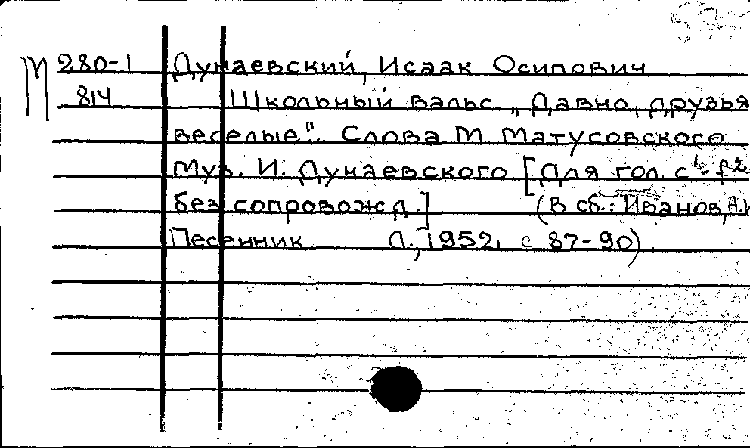 М 280-1 Дунаевский, Исаак Осипович
814 Школьный вальс „Давно, друзья
веселые". Слова М Матусовского
Муз. И. Дунаевского [Для гол. с¹-f²
без сопровожд.] (В сб.: Иванов, А.
Песенник Л., 1952, с 87-90)